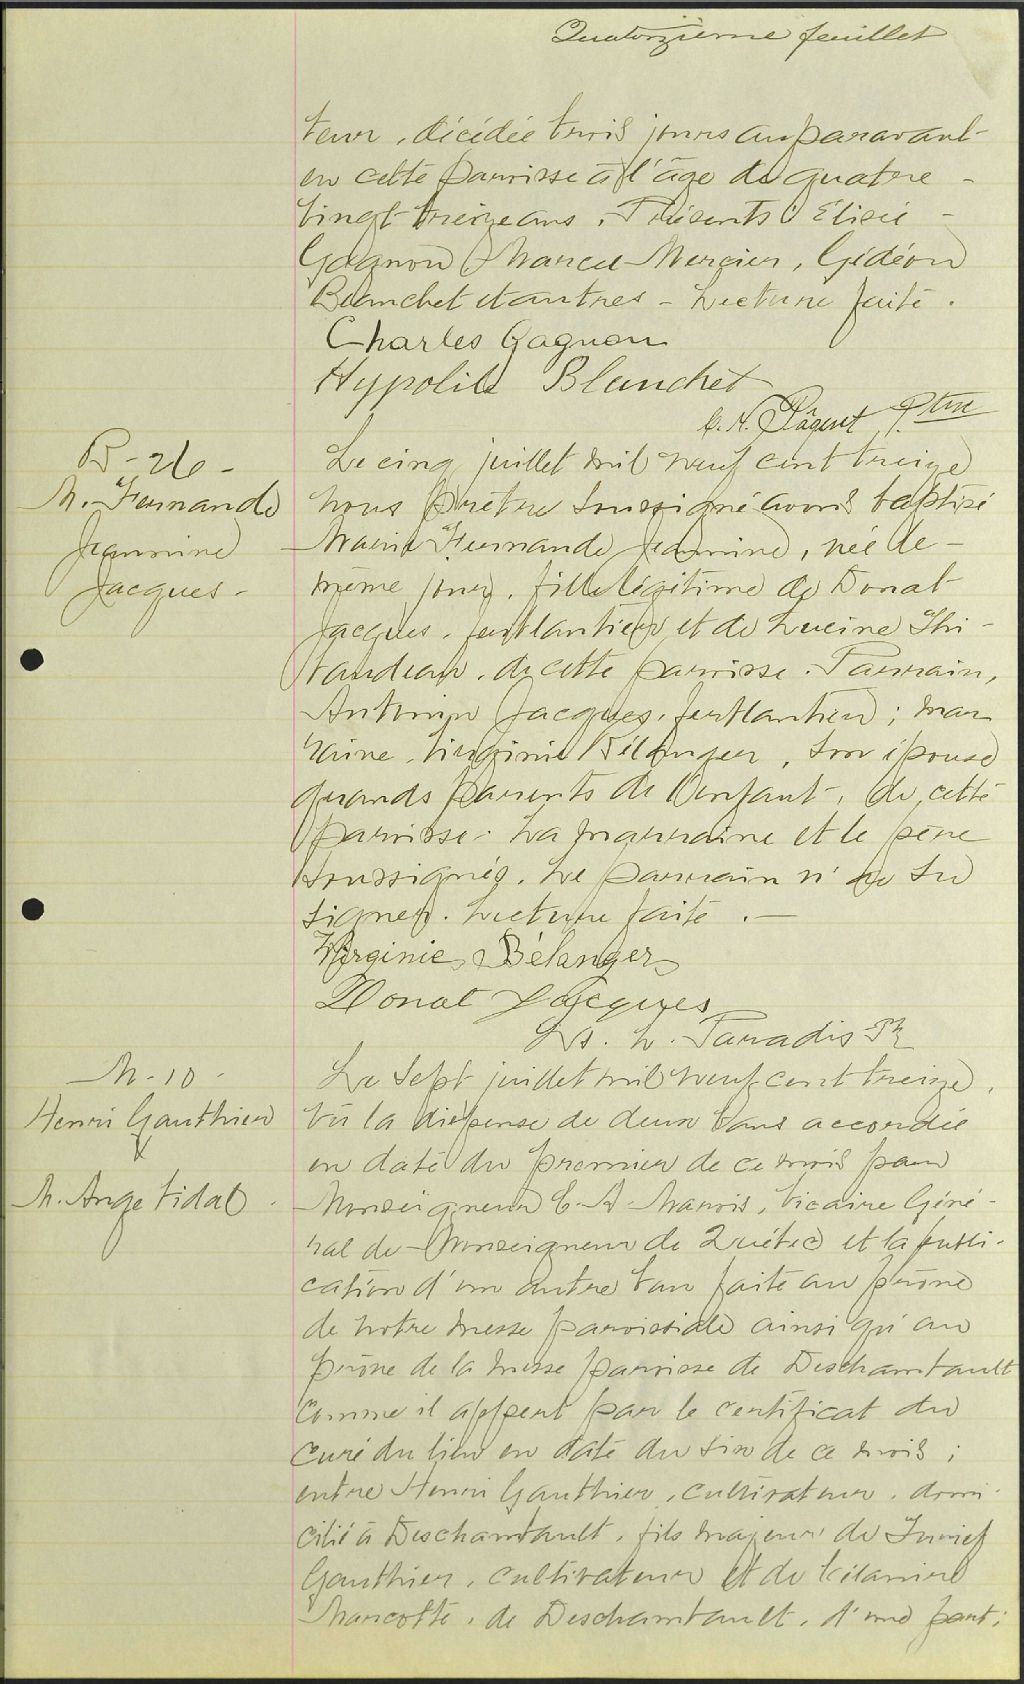 Quatorzième feuillet
teur, décédée trois jours auparavant
en cette paroisse à l'âge de quatre-
vingt-treize ans. Présents: Elisée
Gagnon, Marcel Mercier, Gédéon
Blanchet et autres - Lecture faite.
Charles Gagnon
Hypolite Blanchet
Ptre
B-26-
M. Fernande
Jeannine
Jacques-
Le cinq juillet mil neuf cent treize
nous prêtre soussigné avons baptisé
Marie Fernande Jeannine, née le
même jour, fille légitime de Donat
Jacques, ferblantier et de Lucine Thi-
vaudeau, de cette paroisse. Parrain,
Antonin Jacques, ferblantier; mar
raine, Virginie Bélanger, son épouse
grands parents de l'enfant, de cette
paroisse. La marraine et le père
soussignés. Le parrain n'a su
signer. Lecture faite.-
Virginie Bélanger
Donat Jacques
Ls. L. Paradis Ptr
M-10-
Henri Gauthier
&
M. Ange Vidal
Le sept juillet mil neuf cent treize,
vu la dispense de deux bans accordée
en date du premier de ce mois par
Monseigneur C. A. Marois, Vicaire Géné-
ral de Monseigneur de Québec et la publi-
cation d'un autre ban faite au prône
de notre messe paroissiale ainsi qu'au
prône de la messe paroisse de Deschambault
comme il appert par le certificat du
curé du lieu en date du six de ce mois;
entre Henri Gauthier, cultivateur, domi-
cilié à Deschambault, fils majeur de
Gauthier, cultivateur et de Célanire
Marcotte, de Deschambault, d'une part;